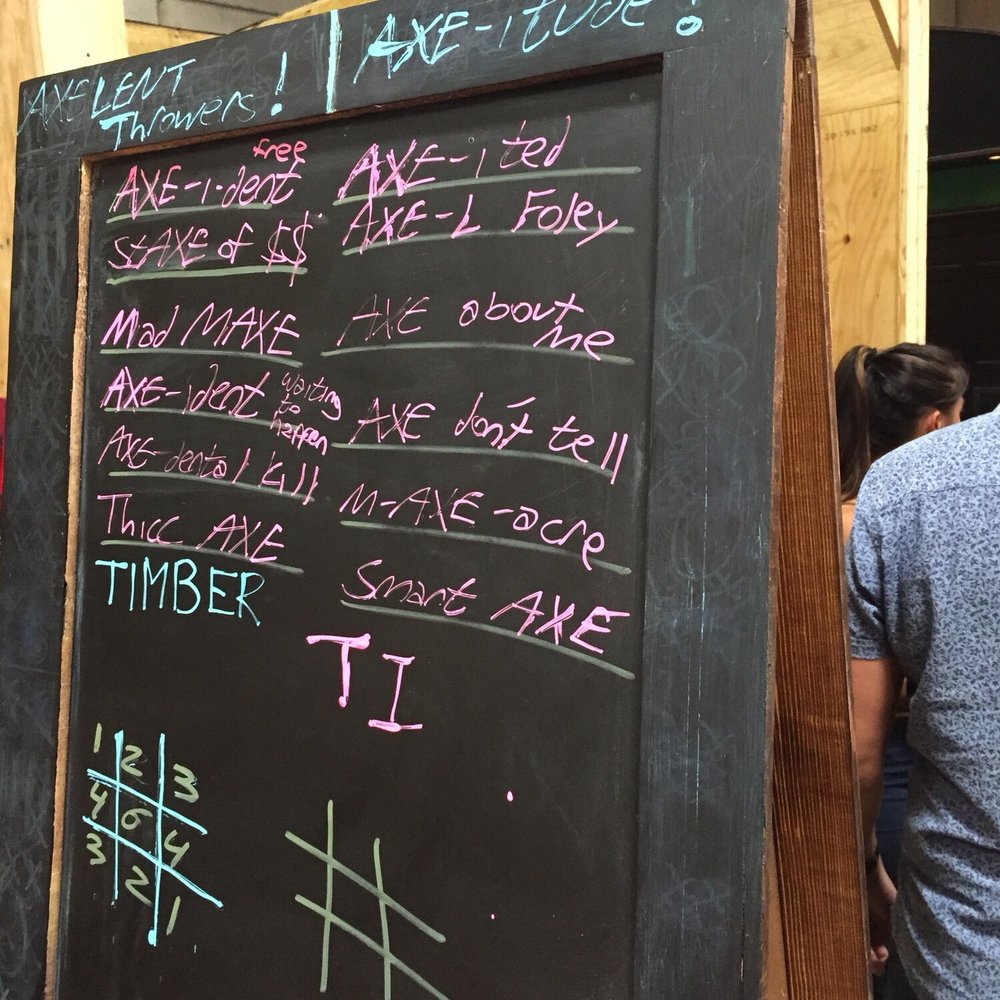 AXELENT
Throwers!
AXE-itude!
free
AXE-i-dent
stAXE of $$
Mad MAXE
AXE-ident waiting
to
happen
AXE-dental kill
Thicc AXE
TIMBER
AXE-ited
AXE-L Foley
AXE about
me
AXE don't tell
M-AXE-acre
Smart AXE
TI
1 2 3
4 6 4
3 2 1